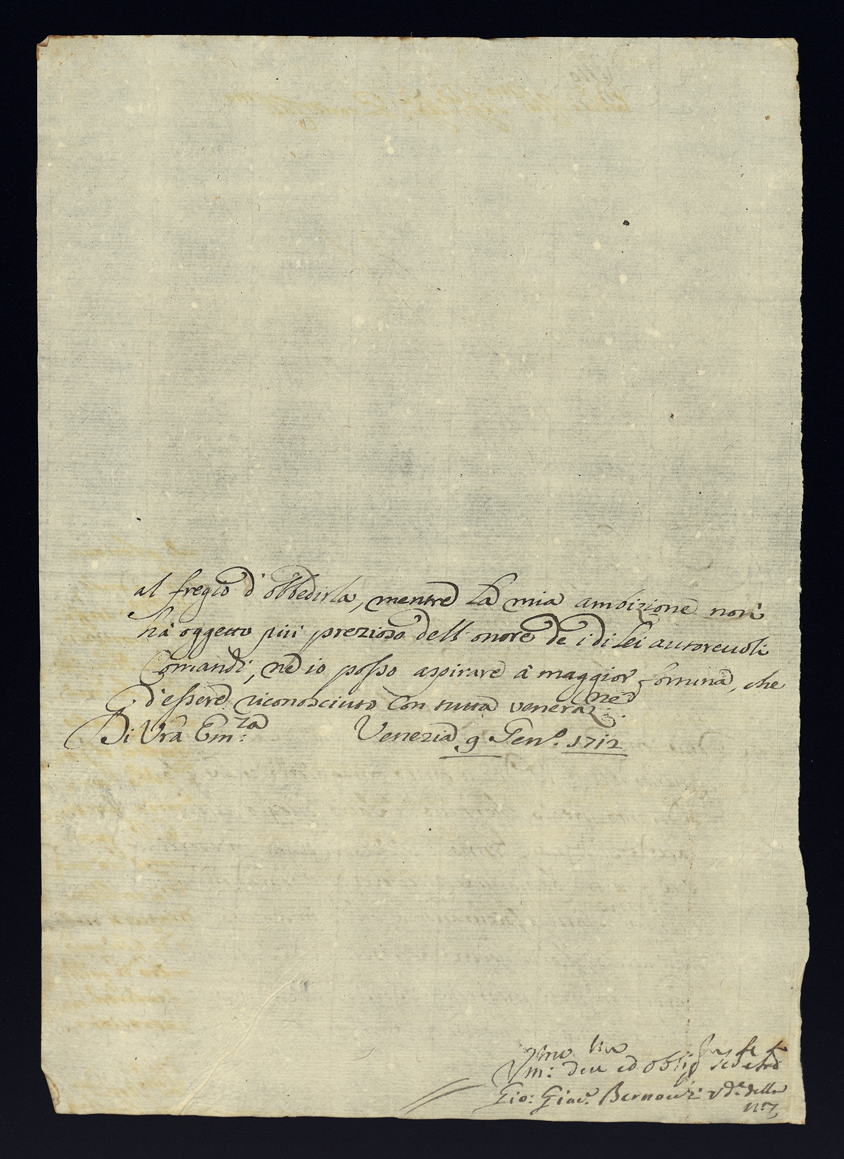 al fregio d'obbedirla, mentre la mia ambizione non
hà oggetto più prezioso dell'onore de i di lei autoreuoli
Comandi, ne io posso aspirare à maggior fortuna, che
d'essere riconosciuto con tutta veneraz:ne
Di Vrã Em:za Venezia 9 Gen.o 1712
Vm: ed
Gio: Giac.o della